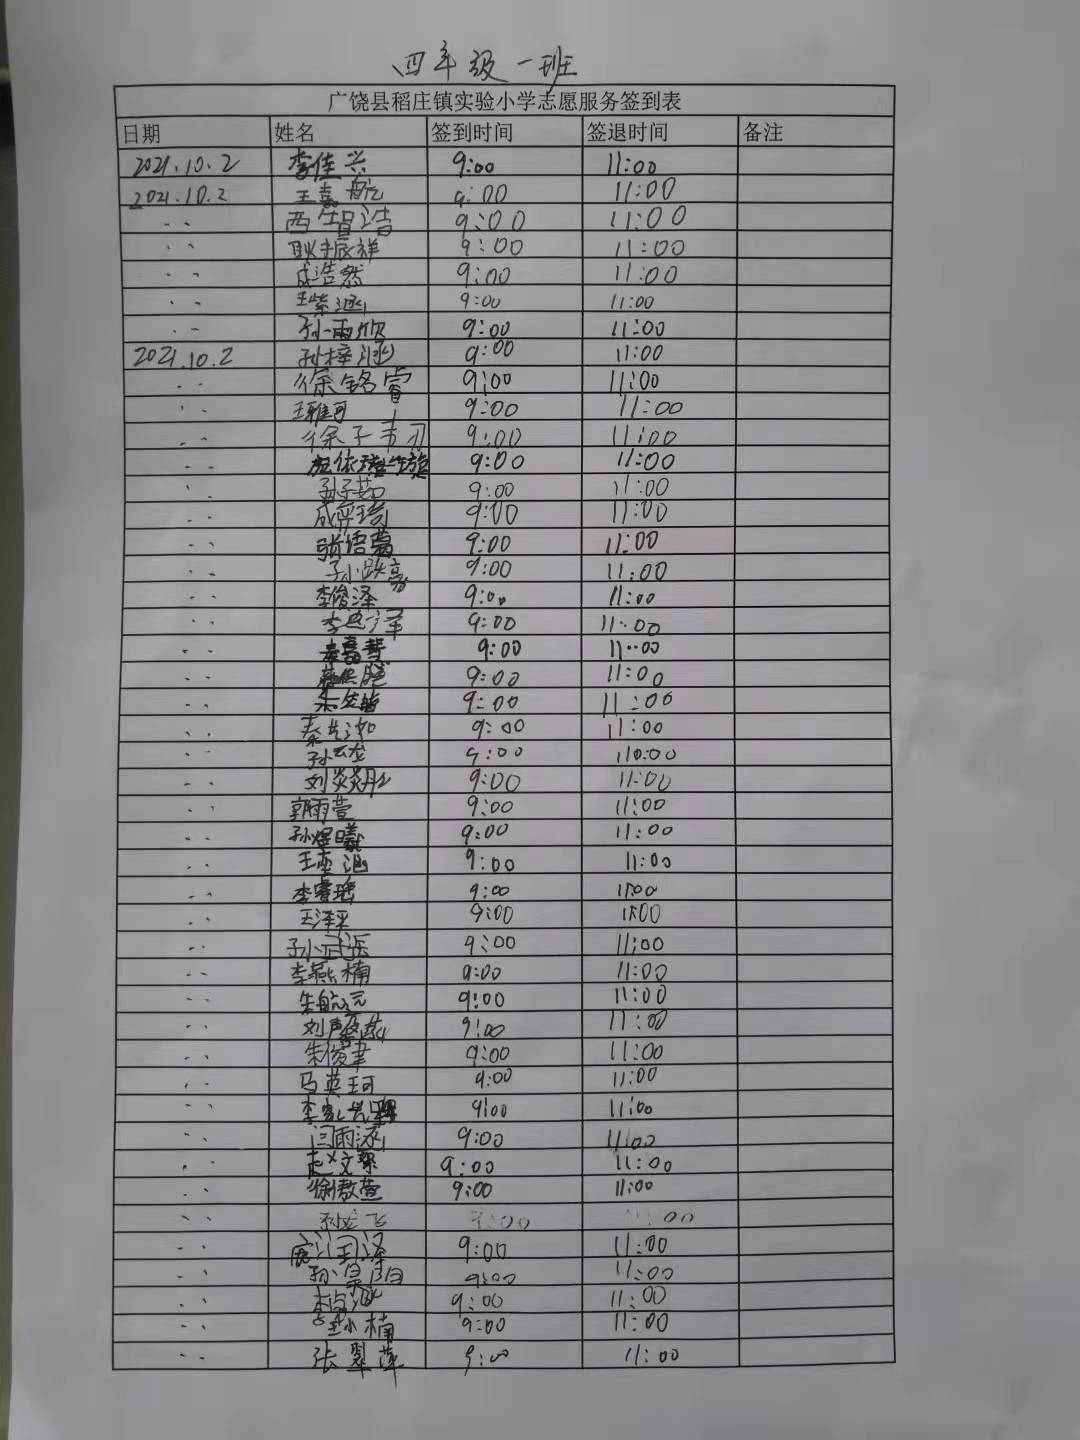 四年级一班
广饶县稻庄镇实验小学志愿服务签到表
日期 姓名 签到时间 签退时间 备注
2021.10.2 李佳兴 9:00 11:00
2021.10.2 王嘉航 9:00 11:00
〃 西 浩 9:00 11:00
〃 耿振祥 9:00 11:00
〃 成浩然 9:00 11:00
〃 王紫涵 9:00 11:00
〃 孙雨欣 9:00 11:00
2021.10.2 孙梓涵 9:00 11:00
〃 徐铭睿 9:00 11:00
〃 王雅可 9:00 11:00
〃 徐子 9:00 11:00
〃 9:00 11:00
〃 孙子茹 9:00 11:00
〃 成 9:00 11:00
〃 张语 9:00 11:00
〃 孙 9:00 11:00
〃 李俊泽 9:00 11:00
〃 李 泽 9:00 11:00
〃 9:00 11:00
〃 9:00 11:00
〃 9:00 11:00
〃 秦 9:00 11:00
〃 孙 9:00 110:00
〃 刘炎彤 9:00 11:00
〃 郭雨萱 9:00 11:00
〃 孙煜曦 9:00 11:00
〃 王 涵 9:00 11:00
〃 李睿瑶 9:00 11:00
〃 王泽 9:00 11:00
〃 孙武 9:00 11:00
〃 李燕楠 9:00 11:00
〃 朱航远 9:00 11:00
〃 刘 9:00 11:00
〃 朱俊聿 9:00 11:00
〃 马英珂 9:00 11:00
〃 李 9:00 11:00
〃 闫雨涵 9:00 11:00
〃 赵文 9:00 11:00
〃 徐傲萱 9:00 11:00
〃 9:00 11:00
〃 润泽 9:00 11:00
〃 孙昊阳 9:00 11:00
〃 9:00 11:00
〃 楠 9:00 11:00
〃 张翠萍 9:00 11:00